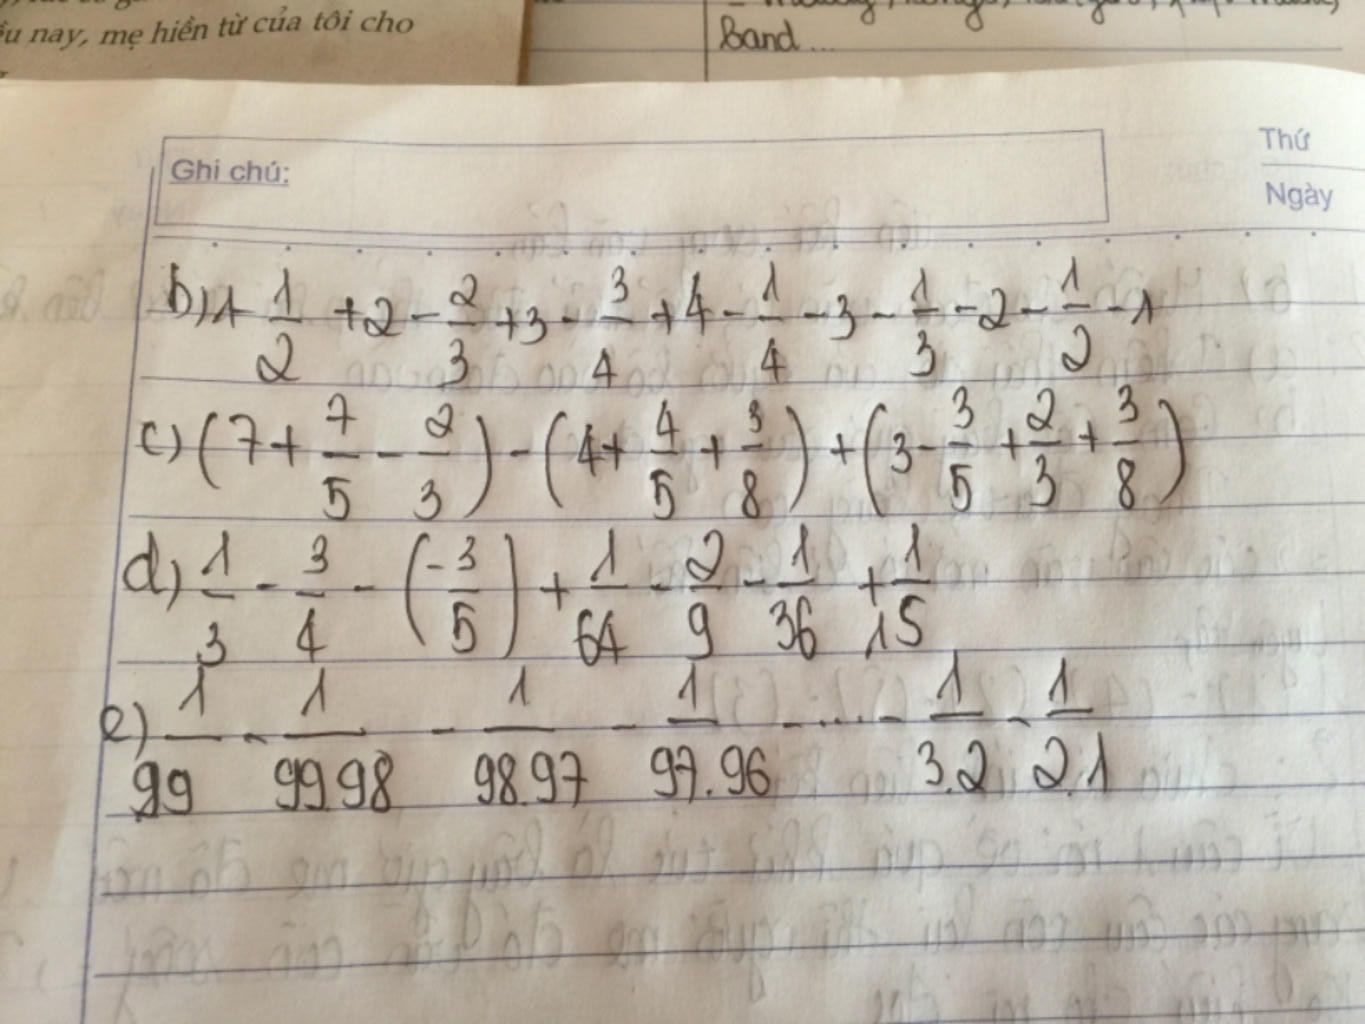 ều nay, mẹ hiền từ của tôi cho
band...
Ghi chú:
Thứ
Ngày
b) 1 - 1/2 + 2 - 2/3 + 3 - 3/4 + 4 - 1/4 - 3 - 1/3 - 2 - 1/2 - 1
c) (7 + 7/5 - 2/3) - (4 + 4/5 + 3/8) + (3 - 3/5 + 2/3 + 3/8)
d) 1/3 - 3/4 - (-3/5) + 1/64 - 2/9 - 1/36 + 1/15
e) 1/99 - 1/99.98 - 1/98.97 - 1/97.96 - .... - 1/3.2 - 1/2.1